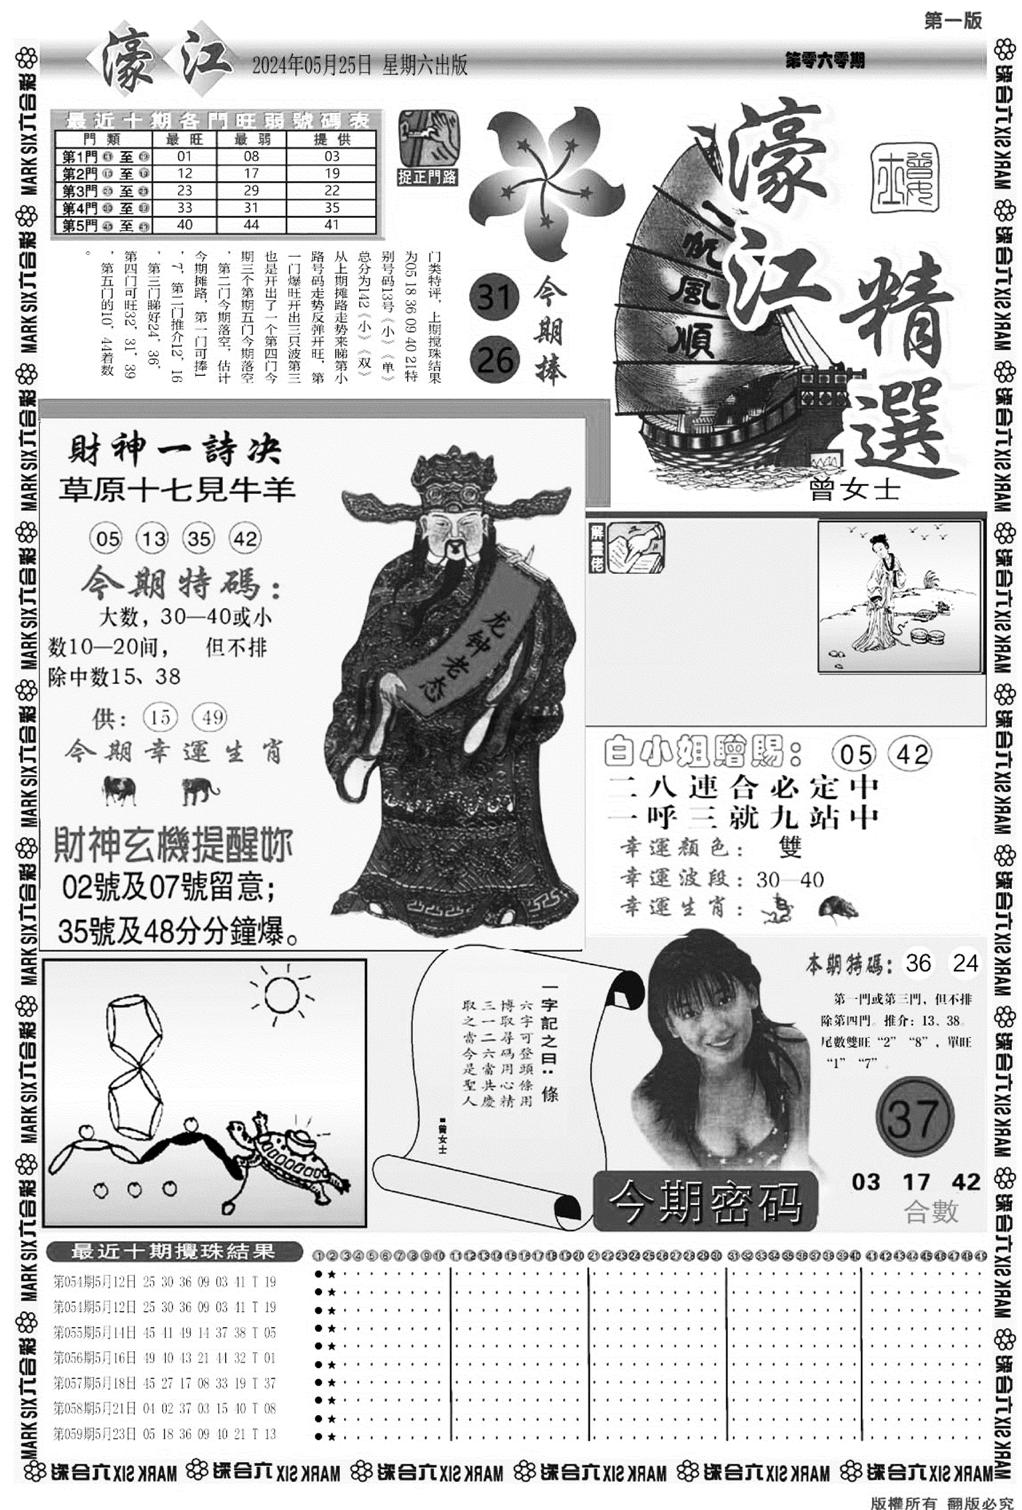 第一版
濠江
2024年05月25日 星期六出版
第零六零期
最近十期各門旺弱號碼表
門類 最旺 最弱 提供
第1門 至 01 08 03
第2門 至 12 17 19
第3門 至 23 29 22
第4門 至 33 31 35
第5門 至 40 44 41
捉正門路
门类特评，上期搅珠结果
为05 18 36 09 40 21特
别号码13号《小》《单》
总分为142《小》《双》
从上期摊路走势来睇第小
路号码走势反弹开旺，第
一门爆旺开出三只波第三
也是开出了一个第四门今
期三个第期五门今期落空
，第二门今期落空，估计
今期摊路，第一门可捧1
，7，第二门推介12，16
，第三门睇好24，36，
第四门可旺32，31，39
，第五门的10，44着数
。
31
26
今期捧
一帆風順
濠江精選
曾女士
財神一詩决
草原十七見牛羊
05 13 35 42
今期特碼：
大数，30—40或小
数10—20间， 但不排
除中数15、38
供：15 49
今期幸運生肖
財神玄機提醒妳
02號及07號留意；
35號及48分分鐘爆。
龙钟老态
解畫佬
白小姐贈賜： 05 42
二八連合必定中
一呼三就九站中
幸運顏色： 雙
幸運波段：30—40
幸運生肖：
一字記之曰：條
六字可登頭條用
博取尋碼用心精
三一二六當共慶
取之當今是聖人
■曾女士
本期特碼：36 24
第一門或第三門，但不排
除第四門。推介：13、38。
尾數雙旺“2” “8”，單旺
“1” “7”。
37
03 17 42
合數
今期密码
最近十期攪珠結果
①②③④⑤⑥⑦⑧⑨⑩⑪⑫⑬⑭⑮⑯⑰⑱⑲⑳㉑㉒㉓㉔㉕㉖㉗㉘㉙㉚㉛㉜㉝㉞㉟㊱㊲㊳㊴㊵㊶㊷㊸㊹㊺㊻㊼㊽㊾
第054期5月12日 25 30 36 09 03 41 T 19
第054期5月12日 25 30 36 09 03 41 T 19
第055期5月14日 45 41 49 14 37 38 T 05
第056期5月16日 49 40 43 21 44 32 T 01
第057期5月18日 45 27 17 08 33 19 T 37
第058期5月21日 04 02 37 03 15 40 T 08
第059期5月23日 05 18 36 09 40 21 T 13
MARK SIX六合彩
版權所有 翻版必究